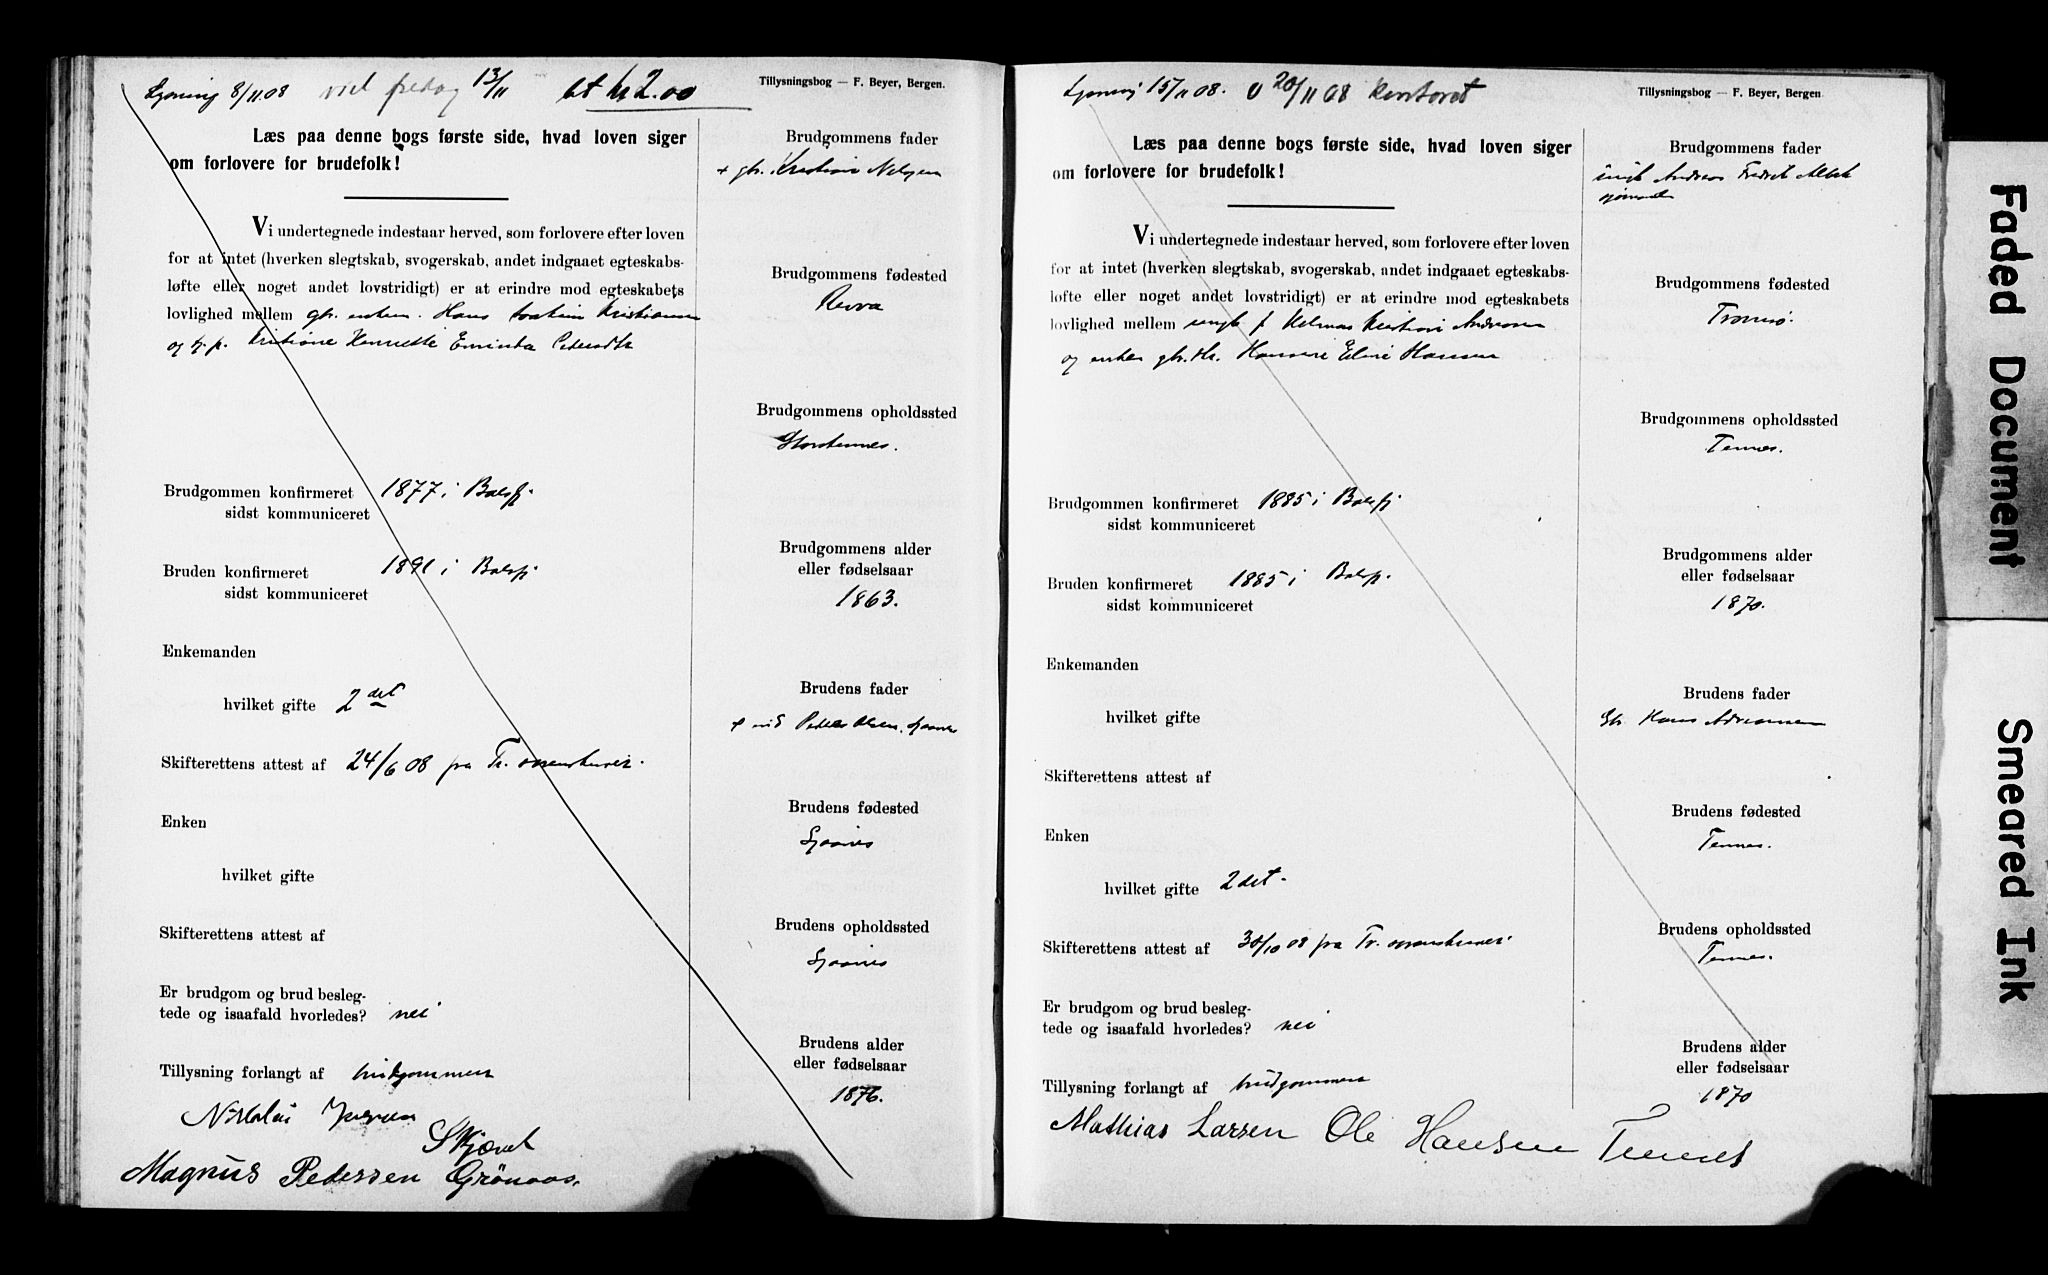 Lysning 8/11.08 viel fredag 13/11 bt kr 2.00
Tillysningsbog — F. Beyer, Bergen.
Læs paa denne bogs første side, hvad loven siger
om forlovere for brudefolk!
Vi undertegnede indestaar herved, som forlovere efter loven
for at intet (hverken slegtskab, svogerskab, andet indgaaet egteskabs-
løfte eller noget andet lovstridigt) er at erindre mod egteskabets
lovlighed mellem gbr. enkem. Hans Kristiansen
og Kristine Henriette
Brudgommen konfirmeret 1877 i Balsfj.
sidst kommuniceret
Bruden konfirmeret 1891 i Balsfj
sidst kommuniceret
Enkemanden
hvilket gifte 2det
Skifterettens attest af 24/6 08 fra Tr.
Enken
hvilket gifte
Skifterettens attest af
Er brudgom og brud besleg-
tede og isaafald hvorledes? nei
Tillysning forlangt af brudgommen
Nikolai Skjæret
Magnus Pedersen Grönaas.
Brudgommens fader
+ gbr. Kristian Nilsen
Brudgommens fødested
Brudgommens opholdssted
Storstennes.
Brudgommens alder
eller fødselsaar
1863.
Brudens fader
Peder Olsen,
Brudens fødested
Brudens opholdssted
Brudens alder
eller fødselsaar
1876.
Lysning 15/11 08. v 20/11 08 kontoret
Tillysningsbog — F. Beyer, Bergen
Læs paa denne bogs første side, hvad loven siger
om forlovere for brudefolk!
Vi undertegnede indestaar herved, som forlovere efter loven
for at intet (hverken slegtskab, svogerskab, andet indgaaet egteskabs-
løfte eller noget andet lovstridigt) er at erindre mod egteskabets
lovlighed mellem ungk f Helmer Kristian Andreasen
og enken gbr. Hansine Eline Hansen
Brudgommen konfirmeret 1885 i Balsfj
sidst kommuniceret
Bruden konfirmeret 1885 i Balsfj.
sidst kommuniceret
Enkemanden
hvilket gifte
Skifterettens attest af
Enken
hvilket gifte 2det.
Skifterettens attest af 30/10 08 fra Tr.
Er brudgom og brud besleg-
tede og isaafald hvorledes? nei
Tillysning forlangt af brudgommen
Mathias Larsen Ole Hansen Tennes
Brudgommens fader
ungk Andreas Fredrik
Brudgommens fødested
Tromsø.
Brudgommens opholdssted
Tennes.
Brudgommens alder
eller fødselsaar
1870.
Brudens fader
Gbr. Hans
Brudens fødested
Tennes.
Brudens opholdssted
Tennes.
Brudens alder
eller fødselsaar
1870
Faded Document
Smeared Ink